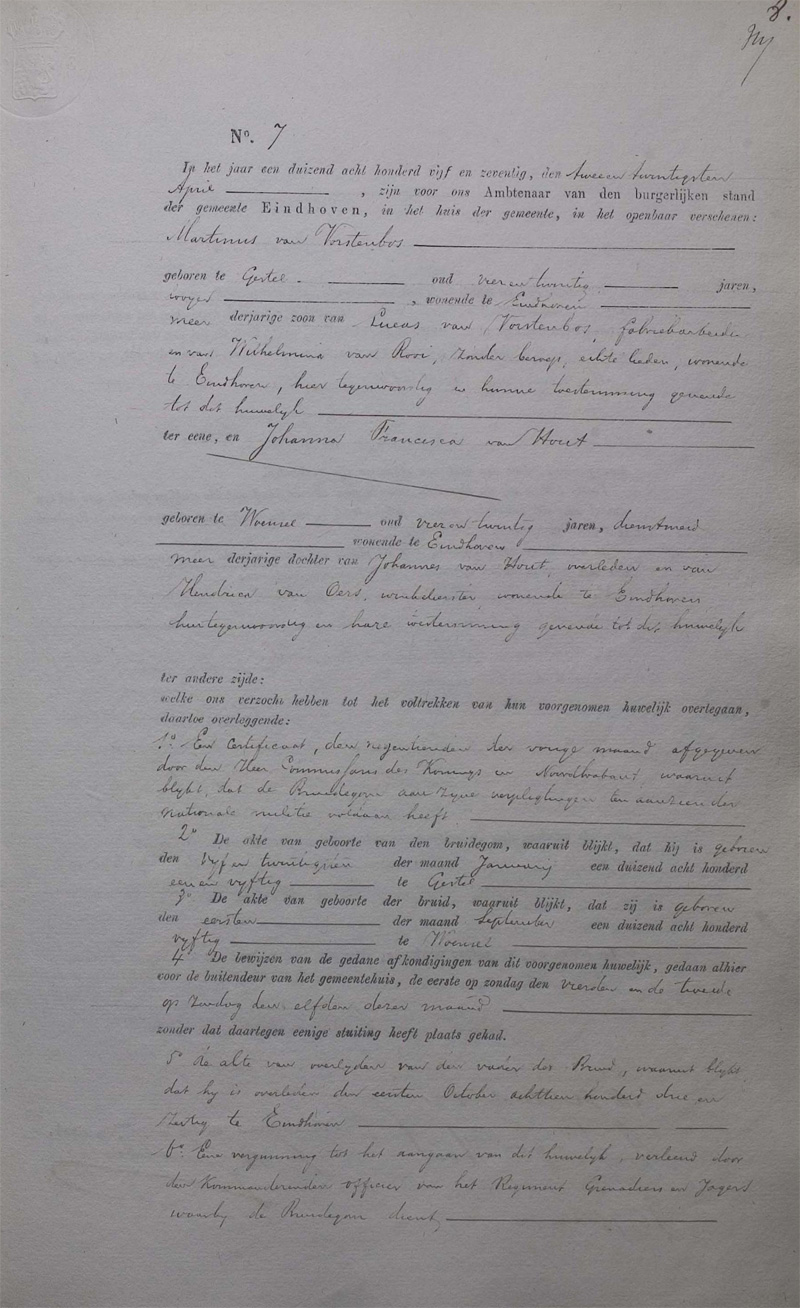 8.
N°. 7
In het jaar een duizend acht honderd vijf en zeventig, den tweeen twintigsten
April , zijn voor ons Ambtenaar van den burgerlijken stand
der gemeente Eindhoven, in het huis der gemeente, in het openbaar verschenen:
Martinus van Vorstenbos
geboren te Gestel oud vier en twintig jaren,
wever , wonende te Eindhoven
meer derjarige zoon van Lucas van Vorstenbos, fabriekarbeider
en van Wilhelmina van Rooi, zonder beroep, echte lieden, wonende
te Eindhoven, hier tegenwoordig en hunne toestemming gevende
tot dit huwelijk
ter eene, en Johanna Francisca van Hout
geboren te Woensel oud vier en twintig jaren, dienstmeid
wonende te Eindhoven
meer derjarige dochter van Johannes van Hout, overleden en van
Hendrica van Oers, winkelierster, wonende te Eindhoven
hiertegenwoordig en hare toestemming gevende tot dit huwelijk
ter andere zijde:
welke ons verzocht hebben tot het voltrekken van hun voorgenomen huwelijk overtegaan,
daartoe overleggende:
1° Een certificaat, den negentienden der vorige maand afgegeven
door den Heer Commissaris des Konings in Noordbrabant, waaruit
blijkt, dat de Bruidegom aan zijne verpligtingen ten aanzien der
nationale militie voldaan heeft
2° De akte van geboorte van den bruidegom, waaruit blijkt, dat hij is geboren
den vijf en twintigsten der maand January een duizend acht honderd
een en vijftig te Gestel
3° De akte van geboorte der bruid, waaruit blijkt, dat zij is geboren
den eersten der maand September een duizend acht honderd
vijftig te Woensel
4° De bewijzen van de gedane afkondigingen van dit voorgenomen huwelijk, gedaan alhier
voor de buitendeur van het gemeentehuis, de eerste op zondag den vierden en de tweede
op Zondag den elfden dezer maand
zonder dat daartegen eenige stuiting heeft plaats gehad.
5° de akte van overlijden van den vader des Bruid, waaruit blijkt
dat hij is overleden den eersten October achttien honderd drie en
zestig te Eindhoven
6° Eene vergunning tot het aangaan van dit huwelijk, verleend door
den Kommanderenden officier van het Regiment Grenadiers en Jagers
waarbij de Bruidegom dient,